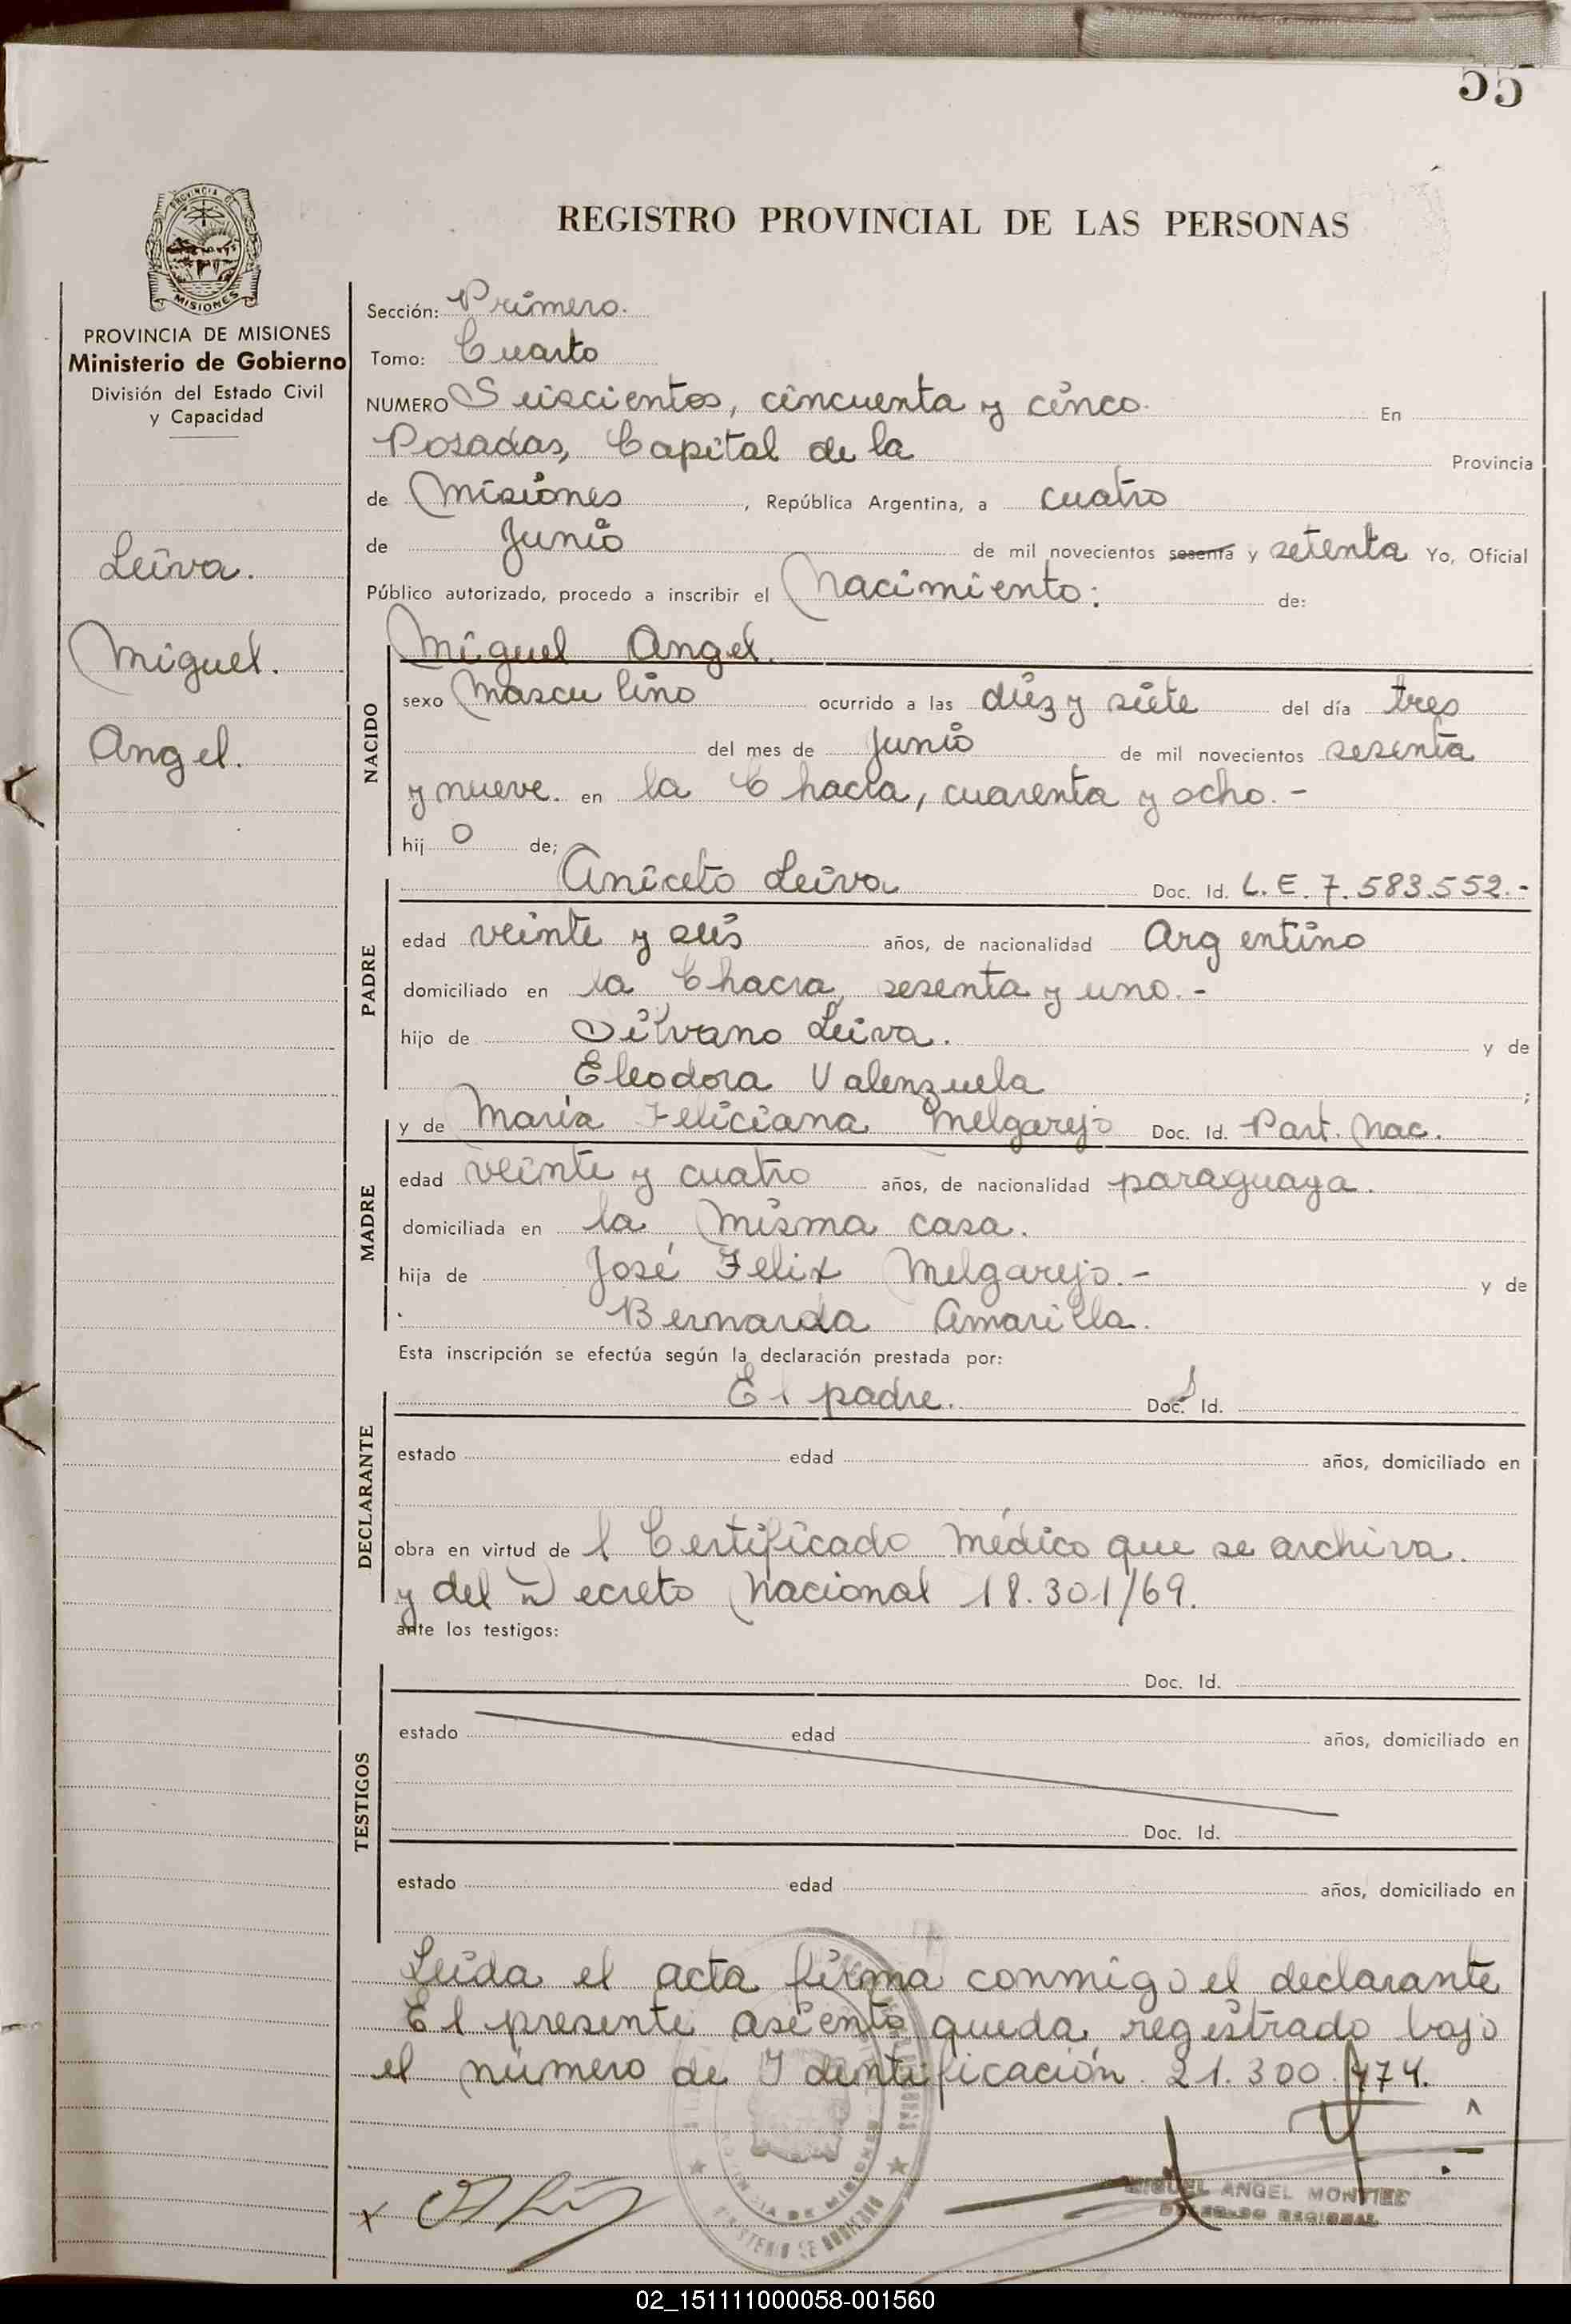 55
REGISTRO PROVINCIAL DE LAS PERSONAS
PROVINCIA DE
MISIONES
PROVINCIA DE MISIONES
Ministerio de Gobierno
División del Estado Civil
y Capacidad
Leiva.
Miguel.
Angel.
Sección: Primero.
Tomo: Cuarto
NUMERO Seiscientos, cincuenta y cinco. En
Posadas, Capital de la Provincia
de Misiones, República Argentina, a cuatro
de Junio de mil novecientos sesenta y setenta Yo, Oficial
Público autorizado, procedo a inscribir el Nacimiento: de:
Miguel Angel.
NACIDO
sexo Masculino ocurrido a las diez y siete del día tres
del mes de Junio de mil novecientos sesenta
y nueve. en la Chacra, cuarenta y ocho.-
hijo de;
PADRE
Aniceto Leiva Doc. Id. L.E. 7.583.552.-
edad veinte y seis años, de nacionalidad Argentino
domiciliado en la Chacra, sesenta y uno.-
hijo de Silvano Leiva. y de
Eleodora Valenzuela ;
MADRE
y de María Feliciana Melgarejo Doc. Id. Part. Nac.
edad veinte y cuatro años, de nacionalidad paraguaya.
domiciliada en la misma casa.
hija de José Felix Melgarejo.- y de
Bernarda Amarilla.
Esta inscripción se efectúa según la declaración prestada por:
DECLARANTE
El padre. Doc. Id.
estado edad años, domiciliado en
obra en virtud de l Certificado Médico que se archiva.
y del Decreto Nacional 18.301/69.
ante los testigos:
TESTIGOS
Doc. Id.
estado edad años, domiciliado en
Doc. Id.
estado edad años, domiciliado en
Leida el acta firma conmigo el declarante
El presente asiento queda registrado bajo
el número de Identificación 21.300.474.
MIGUEL ANGEL MONTIEL
DELEGADO REGIONAL
02_151111000058-001560